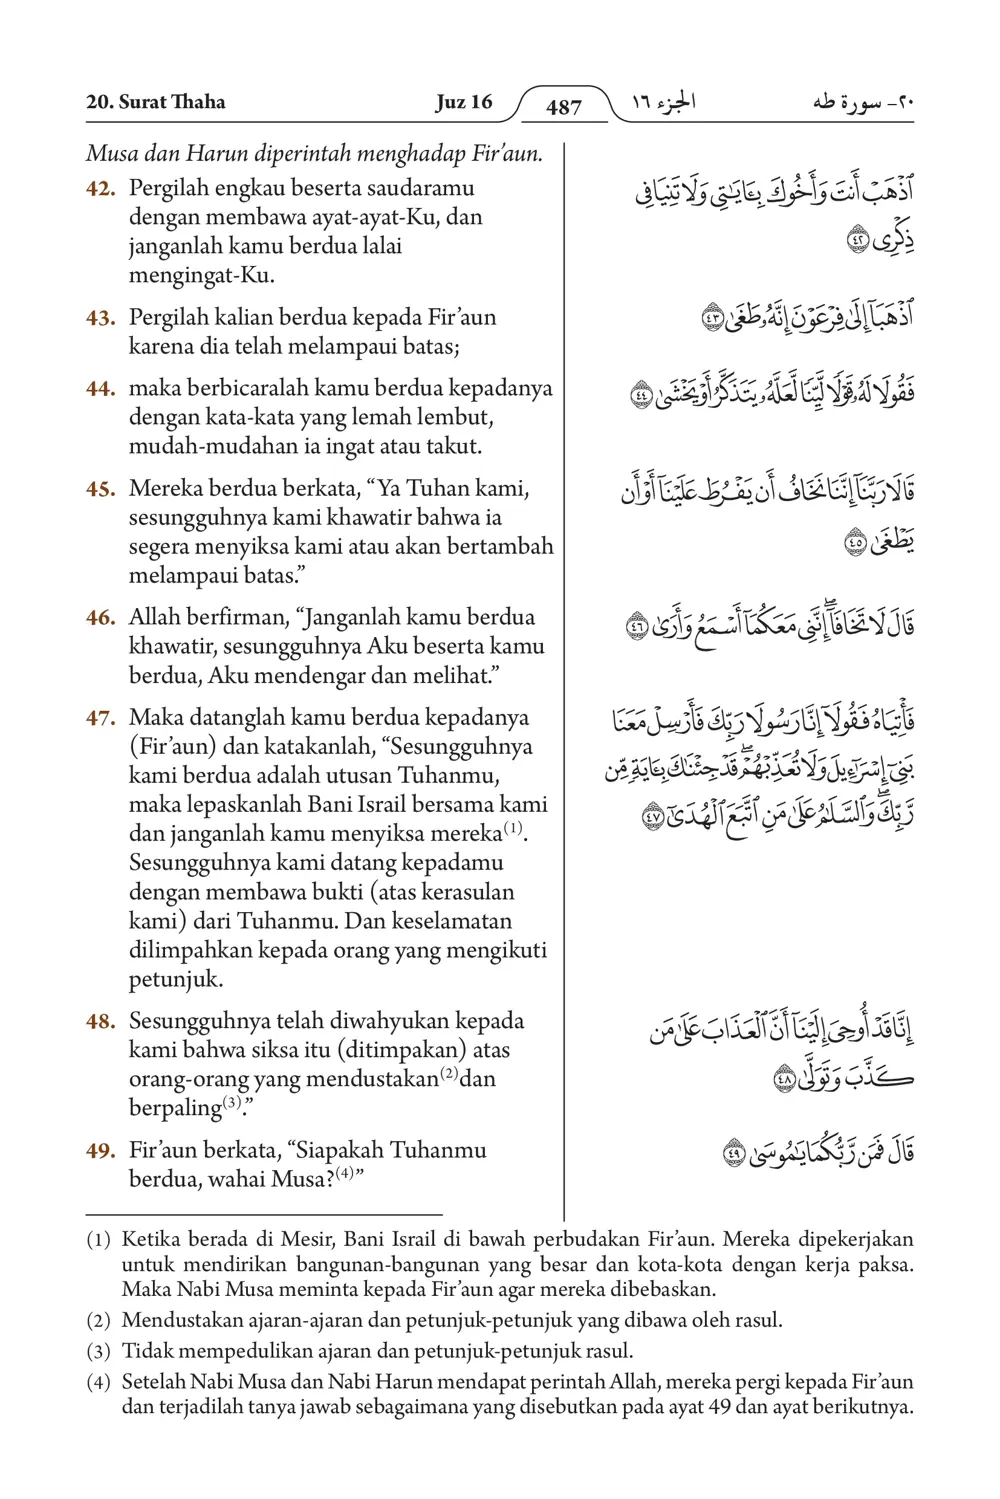 20. Surat Thaha
Juz 16
487
الجزء ١٦
٢٠- سورة طه
Musa dan Harun diperintah menghadap Fir’aun.
42. Pergilah engkau beserta saudaramu
dengan membawa ayat-ayat-Ku, dan
janganlah kamu berdua lalai
mengingat-Ku.
ٱذْهَبْ أَنتَ وَأَخُوكَ بِـَٔايَـٰتِى وَلَا تَنِيَا فِى
ذِكْرِى ٤٢
43. Pergilah kalian berdua kepada Fir’aun
karena dia telah melampaui batas;
ٱذْهَبَآ إِلَىٰ فِرْعَوْنَ إِنَّهُۥ طَغَىٰ ٤٣
44. maka berbicaralah kamu berdua kepadanya
dengan kata-kata yang lemah lembut,
mudah-mudahan ia ingat atau takut.
فَقُولَا لَهُۥ قَوْلًا لَّيِّنًا لَّعَلَّهُۥ يَتَذَكَّرُ أَوْ يَخْشَىٰ ٤٤
45. Mereka berdua berkata, “Ya Tuhan kami,
sesungguhnya kami khawatir bahwa ia
segera menyiksa kami atau akan bertambah
melampaui batas.”
قَالَا رَبَّنَآ إِنَّنَا نَخَافُ أَن يَفْرُطَ عَلَيْنَآ أَوْ أَن
يَطْغَىٰ ٤٥
46. Allah berfirman, “Janganlah kamu berdua
khawatir, sesungguhnya Aku beserta kamu
berdua, Aku mendengar dan melihat.”
قَالَ لَا تَخَافَآ ۖ إِنَّنِى مَعَكُمَآ أَسْمَعُ وَأَرَىٰ ٤٦
47. Maka datanglah kamu berdua kepadanya
(Fir’aun) dan katakanlah, “Sesungguhnya
kami berdua adalah utusan Tuhanmu,
maka lepaskanlah Bani Israil bersama kami
dan janganlah kamu menyiksa mereka(1).
Sesungguhnya kami datang kepadamu
dengan membawa bukti (atas kerasulan
kami) dari Tuhanmu. Dan keselamatan
dilimpahkan kepada orang yang mengikuti
petunjuk.
فَأْتِيَاهُ فَقُولَآ إِنَّا رَسُولَا رَبِّكَ فَأَرْسِلْ مَعَنَا
بَنِىٓ إِسْرَٰٓءِيلَ وَلَا تُعَذِّبْهُمْ ۖ قَدْ جِئْنَـٰكَ بِـَٔايَةٍ مِّن
رَّبِّكَ ۖ وَٱلسَّلَـٰمُ عَلَىٰ مَنِ ٱتَّبَعَ ٱلْهُدَىٰٓ ٤٧
48. Sesungguhnya telah diwahyukan kepada
kami bahwa siksa itu (ditimpakan) atas
orang-orang yang mendustakan(2)dan
berpaling(3).”
إِنَّا قَدْ أُوحِىَ إِلَيْنَآ أَنَّ ٱلْعَذَابَ عَلَىٰ مَن
كَذَّبَ وَتَوَلَّىٰ ٤٨
49. Fir’aun berkata, “Siapakah Tuhanmu
berdua, wahai Musa?(4)”
قَالَ فَمَن رَّبُّكُمَا يَـٰمُوسَىٰ ٤٩
(1) Ketika berada di Mesir, Bani Israil di bawah perbudakan Fir’aun. Mereka dipekerjakan
untuk mendirikan bangunan-bangunan yang besar dan kota-kota dengan kerja paksa.
Maka Nabi Musa meminta kepada Fir’aun agar mereka dibebaskan.
(2) Mendustakan ajaran-ajaran dan petunjuk-petunjuk yang dibawa oleh rasul.
(3) Tidak mempedulikan ajaran dan petunjuk-petunjuk rasul.
(4) Setelah Nabi Musa dan Nabi Harun mendapat perintah Allah, mereka pergi kepada Fir’aun
dan terjadilah tanya jawab sebagaimana yang disebutkan pada ayat 49 dan ayat berikutnya.